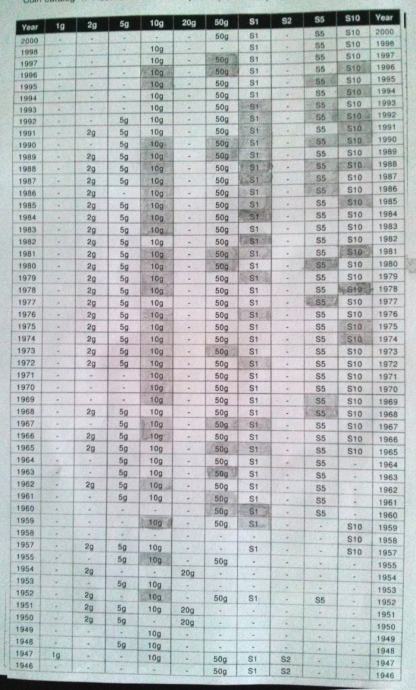 Year 1g 2g 5g 10g 20g 50g S1 S2 S5 S10 Year
2000 - - - - - 50g S1 - S5 S10 2000
1998 - - - 10g - - S1 - S5 S10 1998
1997 - - - 10g - 50g S1 - S5 S10 1997
1996 - - - 10g - 50g S1 - S5 S10 1996
1995 - - - 10g - 50g S1 - S5 S10 1995
1994 - - - 10g - 50g S1 - S5 S10 1994
1993 - - - 10g - 50g S1 - S5 S10 1993
1992 - - 5g 10g - 50g S1 - S5 S10 1992
1991 - 2g 5g 10g - 50g S1 - S5 S10 1991
1990 - - 5g 10g - 50g S1 - S5 S10 1990
1989 - 2g 5g 10g - 50g S1 - S5 S10 1989
1988 - 2g 5g 10g - 50g S1 - S5 S10 1988
1987 - 2g 5g 10g - 50g S1 - S5 S10 1987
1986 - 2g - 10g - 50g S1 - S5 S10 1986
1985 - 2g 5g 10g - 50g S1 - S5 S10 1985
1984 - 2g 5g 10g - 50g S1 - S5 S10 1984
1983 - 2g 5g 10g - 50g S1 - S5 S10 1983
1982 - 2g 5g 10g - 50g S1 - S5 S10 1982
1981 - 2g 5g 10g - 50g S1 - S5 S10 1981
1980 - 2g 5g 10g - 50g S1 - S5 S10 1980
1979 - 2g 5g 10g - 50g S1 - S5 S10 1979
1978 - 2g 5g 10g - 50g S1 - S5 S10 1978
1977 - 2g 5g 10g - 50g S1 - S5 S10 1977
1976 - 2g 5g 10g - 50g S1 - S5 S10 1976
1975 - 2g 5g 10g - 50g S1 - S5 S10 1975
1974 - 2g 5g 10g - 50g S1 - S5 S10 1974
1973 - 2g 5g 10g - 50g S1 - S5 S10 1973
1972 - 2g 5g 10g - 50g S1 - S5 S10 1972
1971 - - - 10g - 50g S1 - S5 S10 1971
1970 - - - 10g - 50g S1 - S5 S10 1970
1969 - - - 10g - 50g S1 - S5 S10 1969
1968 - 2g 5g 10g - 50g S1 - S5 S10 1968
1967 - - 5g 10g - 50g S1 - S5 S10 1967
1966 - 2g 5g 10g - 50g S1 - S5 S10 1966
1965 - 2g 5g 10g - 50g S1 - S5 S10 1965
1964 - - 5g 10g - 50g S1 - S5 - 1964
1963 - - 5g 10g - 50g S1 - S5 - 1963
1962 - 2g 5g 10g - 50g S1 - S5 - 1962
1961 - - 5g 10g - 50g S1 - S5 - 1961
1960 - - - - - 50g S1 - S5 - 1960
1959 - - - 10g - 50g S1 - - S10 1959
1958 - - - - - - - - - S10 1958
1957 - 2g 5g 10g - - S1 - - S10 1957
1955 - - 5g 10g - 50g - - - - 1955
1954 - 2g - - 20g - - - - - 1954
1953 - - 5g 10g - - - - - - 1953
1952 - 2g - 10g - 50g S1 - S5 - 1952
1951 - 2g 5g 10g 20g - - - - - 1951
1950 - 2g 5g - 20g - - - - - 1950
1949 - - - 10g - - - - - - 1949
1948 - - 5g 10g - - - - - - 1948
1947 1g - - 10g - 50g S1 S2 - - 1947
1946 - - - - - 50g S1 S2 - - 1946